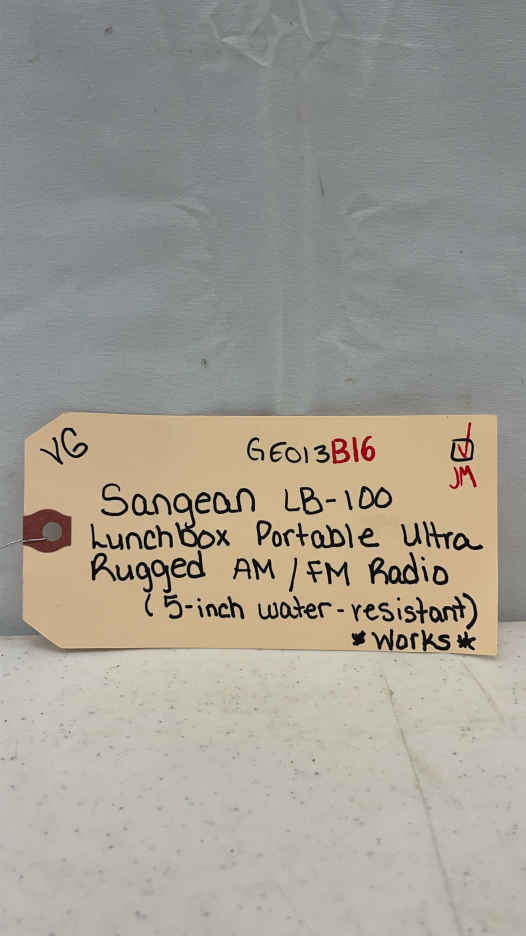 VG
GE013B16
JM
Sangean LB-100
Lunchbox Portable Ultra
Rugged AM / FM Radio
(5-inch water-resistant)
*Works*